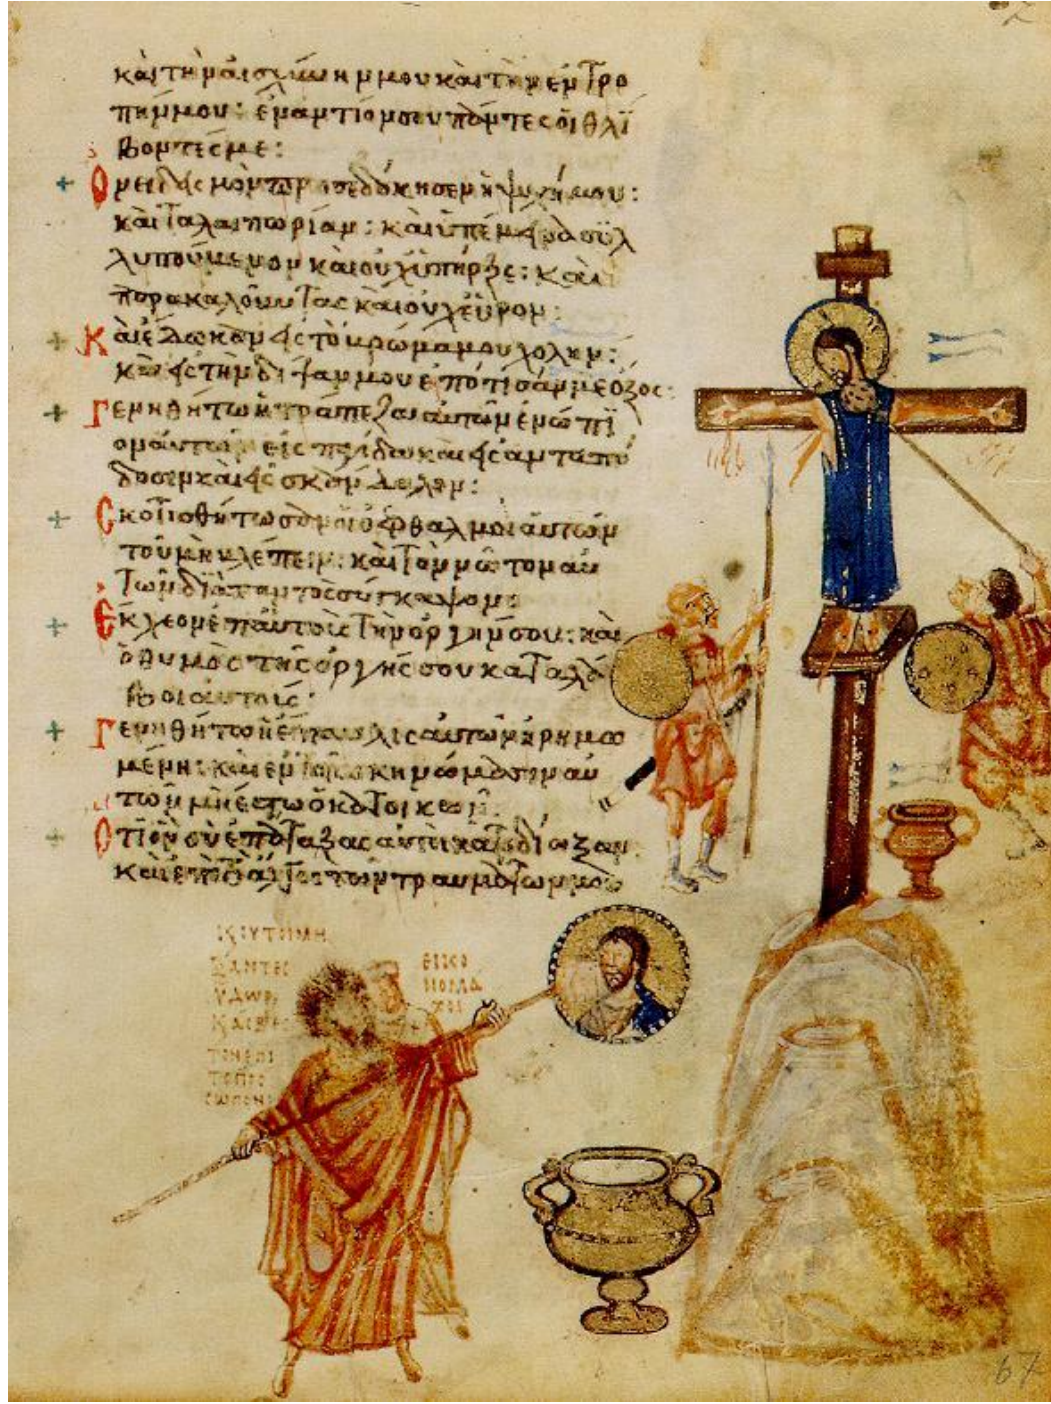 καὶ τὴν αἰσχύνην μου καὶ τὴν ἐντρο
πήν μου: ἐναντίον σου πάντες οἱ θλί
βοντές με:
Ονειδισμὸν προσεδόκησεν ἡ ψυχή μου:
καὶ ταλαιπωρίαν: καὶ ὑπέμεινα συλ
λυπούμενον καὶ οὐχ ὑπῆρξε: καὶ
παρακαλοῦντας καὶ οὐχ εὗρον:
Καὶ ἔδωκαν εἰς τὸ βρῶμά μου χολήν:
καὶ εἰς τὴν δίψαν μου ἐπότισάν με ὄξος:
Γενηθήτω ἡ τράπεζα αὐτῶν ἐνώπι
ον αὐτῶν εἰς παγίδα καὶ εἰς ἀνταπό
δοσιν καὶ εἰς σκάνδαλον:
Σκοτισθήτωσαν οἱ ὀφθαλμοὶ αὐτῶν
τοῦ μὴ βλέπειν: καὶ τὸν νῶτον αὐ
τῶν διὰ παντὸς σύγκαψον:
Ἔκχεον ἐπ' αὐτοὺς τὴν ὀργήν σου: καὶ
ὁ θυμὸς τῆς ὀργῆς σου καταλά
βοι αὐτούς:
Γενηθήτω ἡ ἔπαυλις αὐτῶν ἠρημω
μένη: καὶ ἐν τοῖς σκηνώμασιν αὐ
τῶν μὴ ἔστω ὁ κατοικῶν:
Ὅτι ὃν σὺ ἐπάταξας αὐτοὶ κατεδίωξαν
καὶ ἐπὶ τὸ ἄλγος τῶν τραυμάτων μου
ΕΙΚΟ
ΝΟΜΑ
ΧΟΙ
ΥΔΩΡ
67